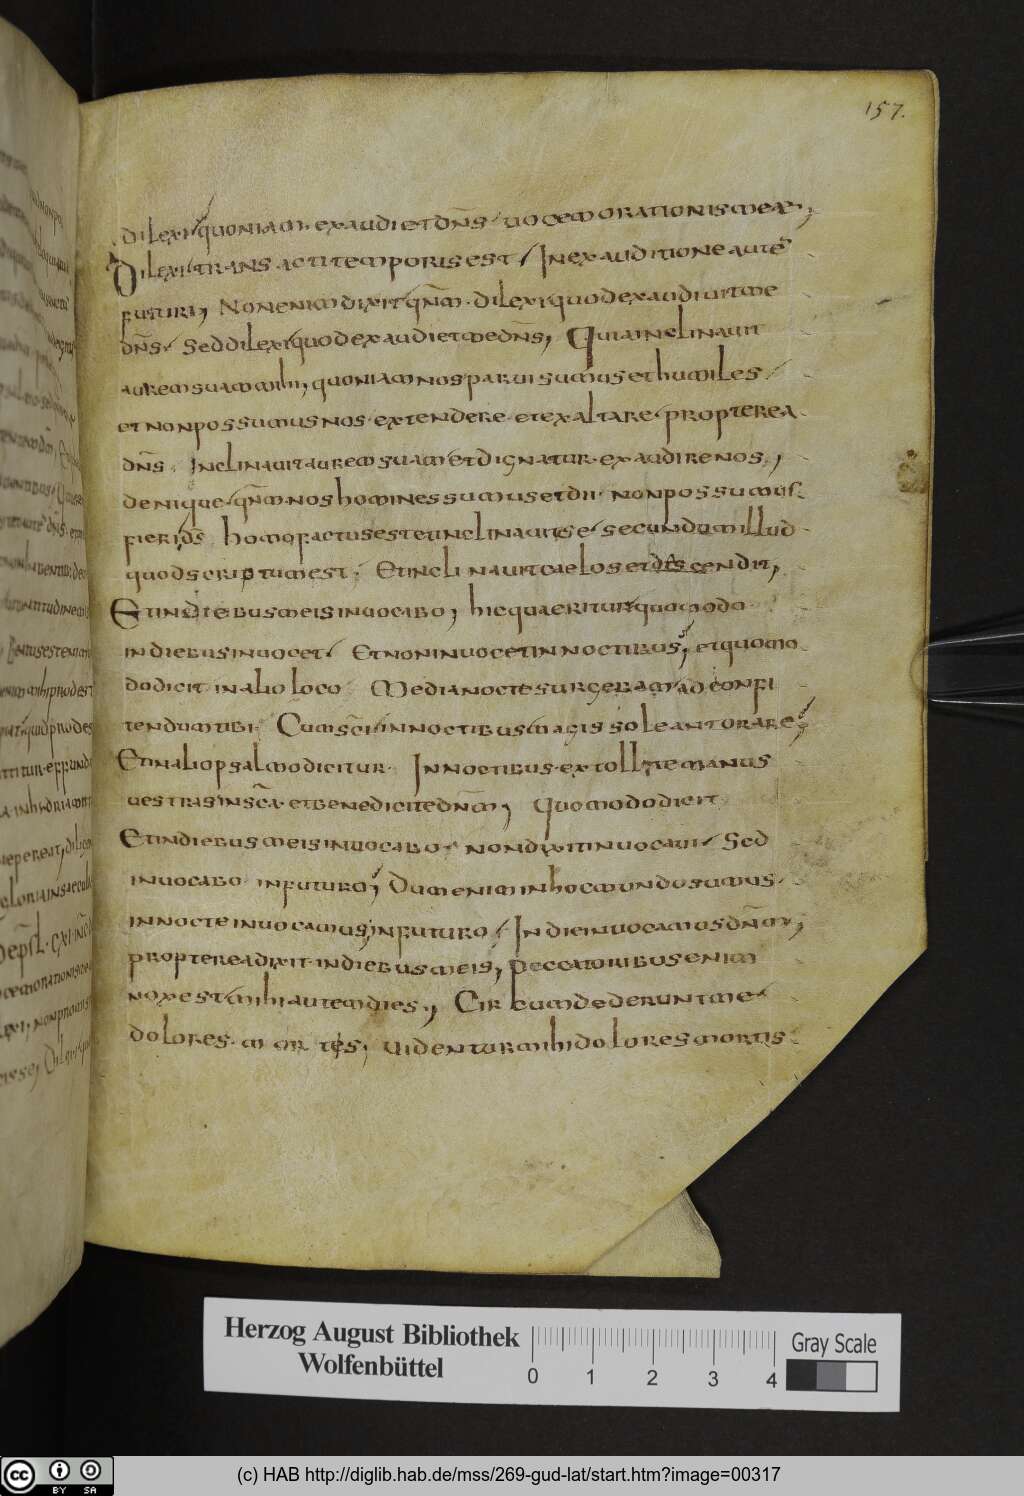 157.
dilexi quoniam exaudiet dn̄s uocem orationis meae;
Dilexi transacti temporis est / In exauditione autē
futuri; Non enim dixit qn̄m dilexi quod exaudiuit me
dn̄s / Sed dilexi quod exaudiet me dn̄s; Quia inclinauit
aurem suam mihi; quoniam nos parui sumus et humiles /
et non possumus nos extendere et exaltare propterea
dn̄s. Inclinauit aurem suam et dignatur exaudire nos;
denique qn̄m nos homines sumus et dii non possumus
fieri, ds̄ homo factus est et inclinauit se secundum illud
quod scriptum est; Et inclinauit caelos et descendit;
Et in diebus meis inuocabo; hic quaeritur quomodo
in diebus inuocet / Et non inuocet in noctibus; et quomo
do dicit in alio loco Media nocte surgebam ad confi
tendum tibi; Cum sc̄i in noctibus magis soleant orare;
Et in alio psalmo dicitur In noctibus extollite manus
uestras in sc̄a et benedicite dn̄m; Quomodo dicit
Et in diebus meis inuocabo non dixit inuocaui / Sed
inuocabo in futurum; Dum enim in hoc mundo sumus
in nocte inuocamus, in futuro / In die inuocamus dn̄m;
propterea dixit in diebus meis; peccatoribus enim
nox est mihi autem dies; Circumdederunt me
dolores mortis; Uidentur mihi dolores mortis
Herzog August Bibliothek
Wolfenbüttel
0 1 2 3 4
Gray Scale
cc BY SA
(c) HAB http://diglib.hab.de/mss/269-gud-lat/start.htm?image=00317